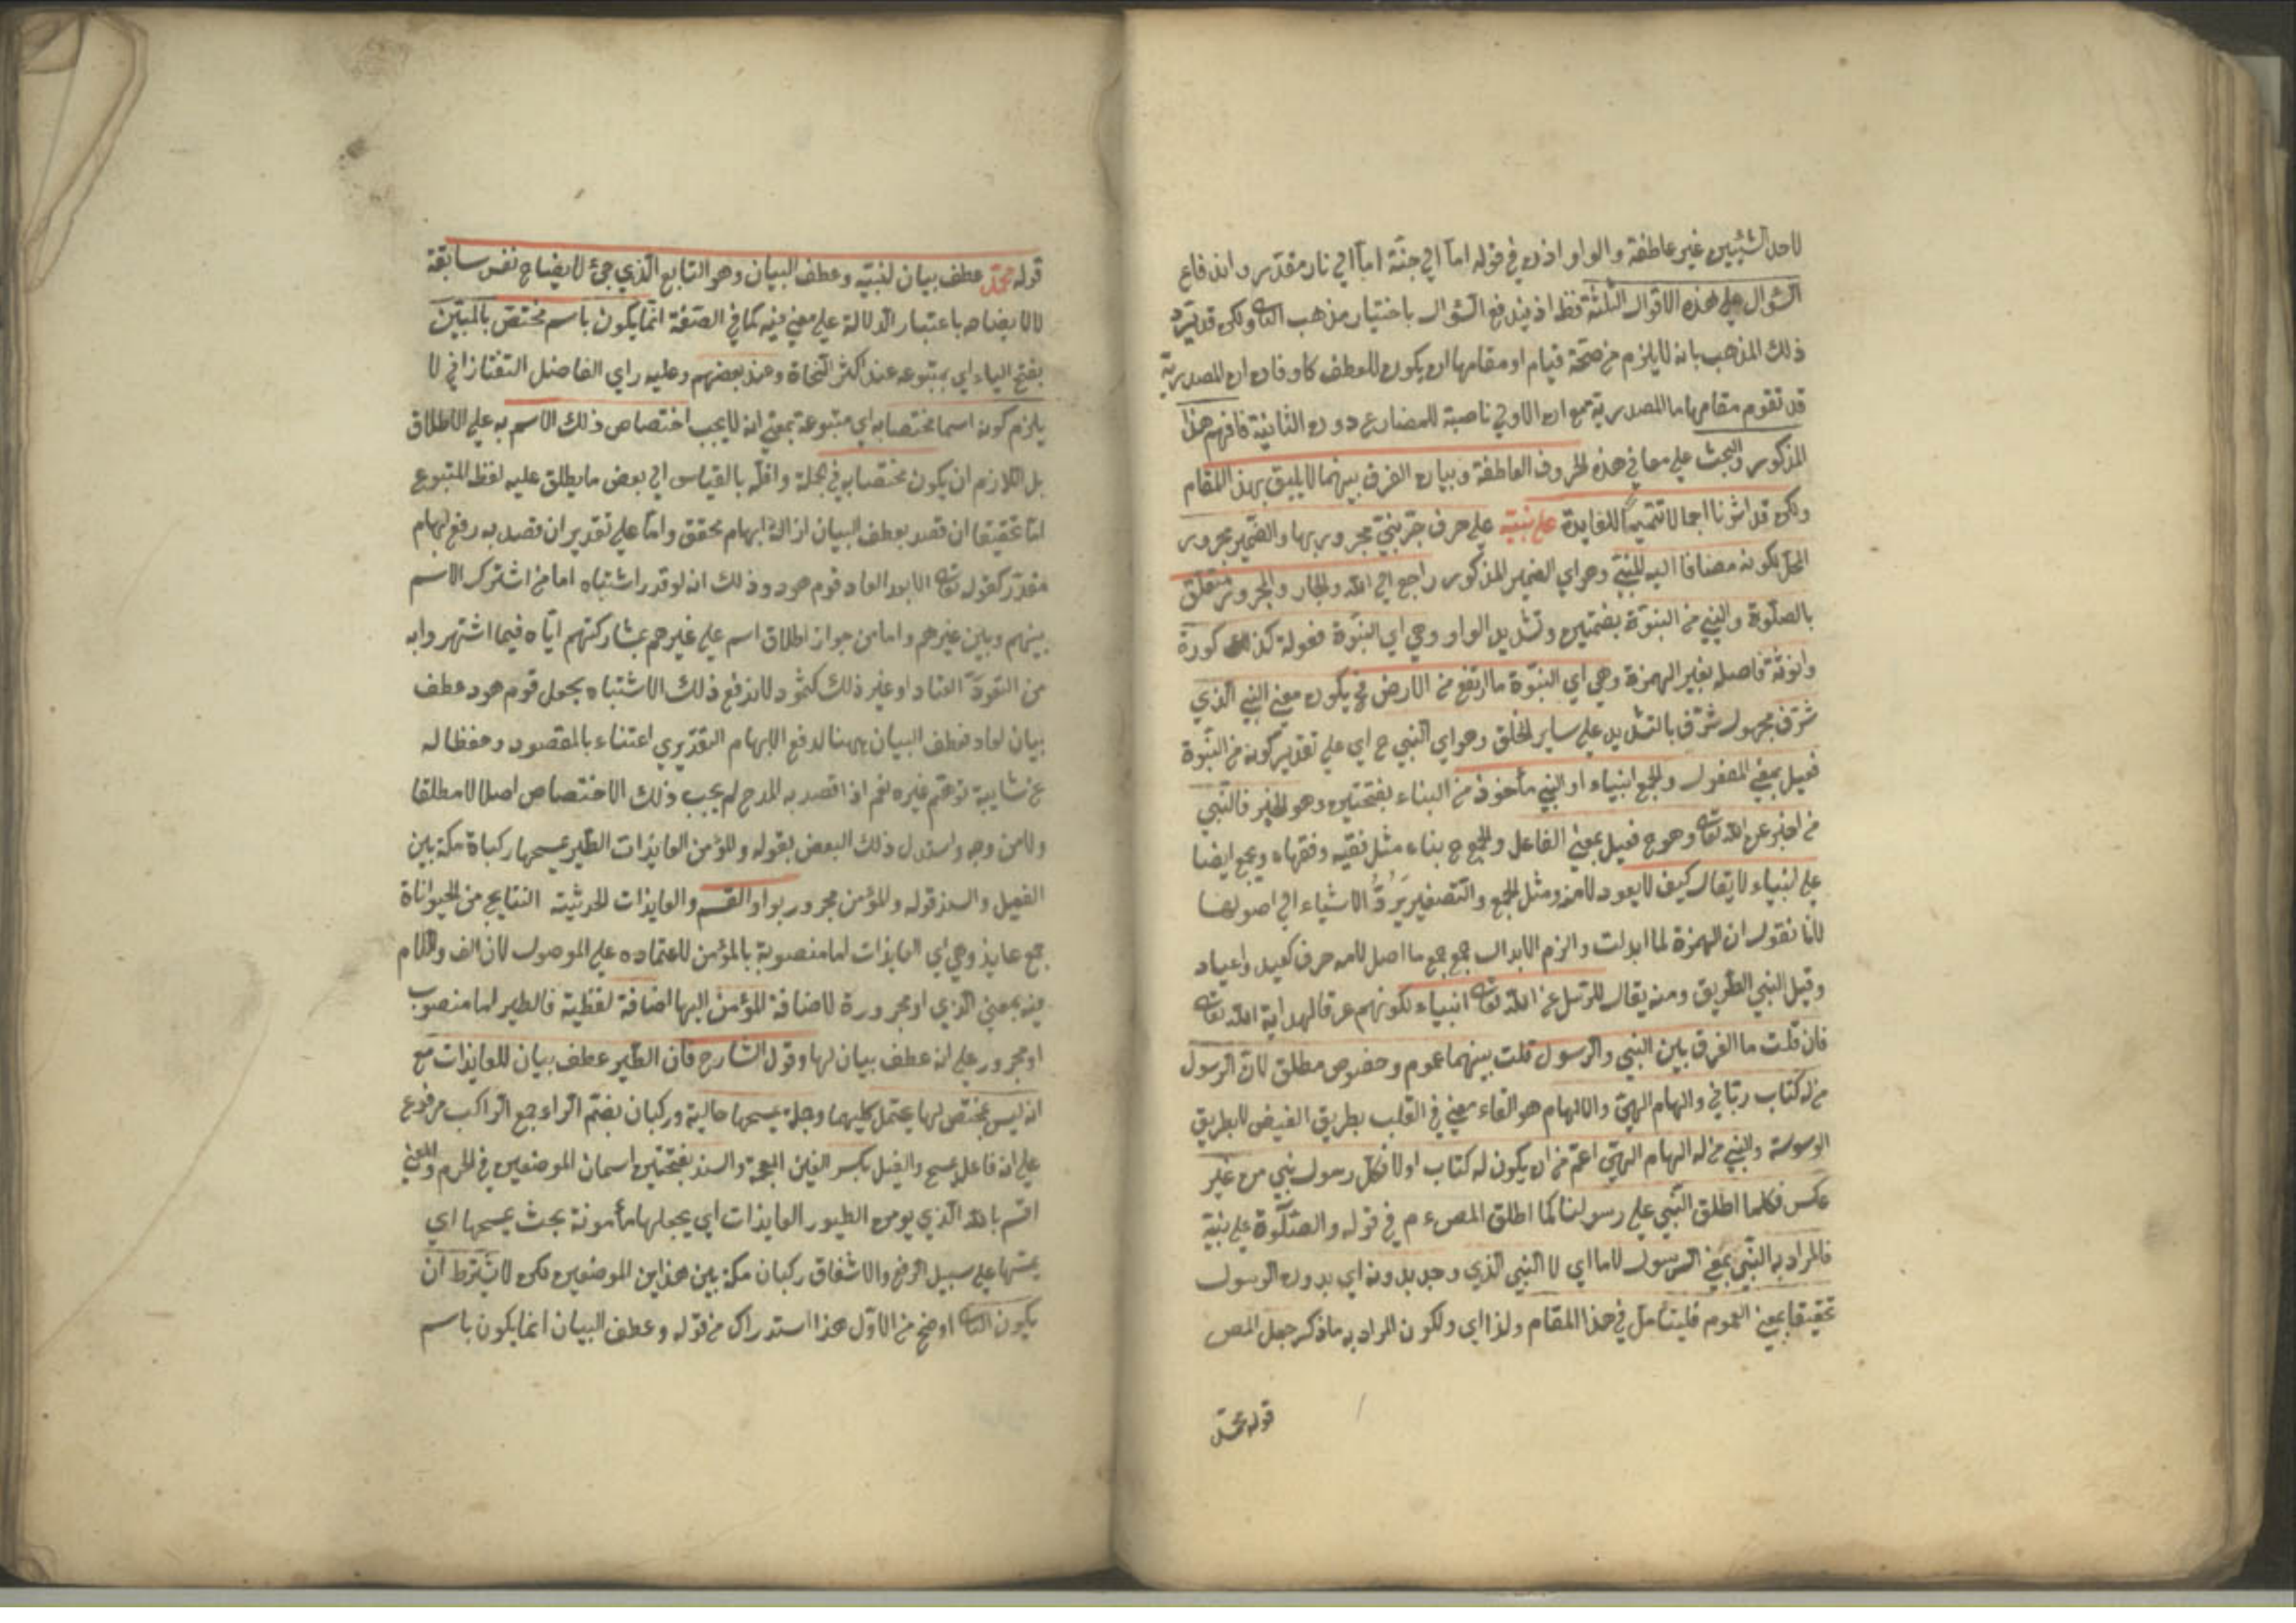 لاحد الشيئين غير عاطفة والواو اذن في قوله اما الى جنة اما الى نار مقدر واندفاع
السؤال على هذه الاقوال الثلثة فقط اذ يندفع السؤال باختيار مذهب الثا ولكن قد يرد
ذلك المذهب بانه لا يلزم من صحة قيام او مقامها ان يكون للعطف كاو فان ان المصدرية
قد تقوم مقامها ما المصدرية مع ان الاولى ناصبة للمضارع دون الثانية فافهم هذا
المذكور والبحث على معاني هذه الحروف العاطفة وبيان الفرق بينهما لا يليق بهذا المقام
ولكن قد اشرنا اجمالا تتميما للفايدة على نبيه على حرف جر نبي مجرور بها والضمير مجرور
المحل بكونه مضافا اليه للنبي وهو اي الضمير المذكور راجع الى الله والجار والمجرور متعلق
بالصلوة والنبي من النبوة بضمتين وتشديد الواو وهي اي النبوة فعولة كذكورة
وانوثة فاصله بغير الهمزة وهي اي النبوة ما ارتفع من الارض فح يكون معنى النبي الذي
شرف مجهول شرف بالتشديد على ساير الخلق وهو اي النبي ح اي على تقدير كونه من النبوة
فعيل بمعنى المفعول والجمع انبياء او النبي مأخوذ من النباء بفتحتين وهو الخبر فالنبي
من اخبر عن الله تعا وهو ح فعيل بمعنى الفاعل والجمع ح نباء مثل فقيه وفقهاء ويجمع ايضا
على انبياء لا يقال كيف لا يعود لامه ومثل الجمع والتصغير يَرُدُّ الاشياء الى اصولها
لانا نقول ان الهمزة لما ابدلت والزم الابدال جمع جمع ما اصل لامه حرف كعيد واعياد
وقيل النبي الطريق ومنه يقال للرسل عن الله تعا انبياء لكونهم طرقا لهداية الله تعا
فان قلت ما الفرق بين النبي والرسول قلت بينهما عموم وخصوص مطلق لان الرسول
من له كتاب رباني والهام الهي والالهام هو القاء معنى في القلب بطريق الفيض لا بطريق
الوسوسة والنبي من له الهام الهي اعم من ان يكون له كتاب اولا فكل رسول نبي من غير
عكس فكلما اطلق النبي على رسولنا كما اطلق المص ع م في قوله والصلوة على نبيه
فالمراد به النبي بمعنى الرسول لا ما اي لا النبي الذي وجد بدونه اي بدون الرسول
تحقيقا بمعنى العموم فليتأمل في هذا المقام ولذا اي ولكون المراد به ما ذكر جعل المص
قوله محمد
قوله محمد عطف بيان لنبيه وعطف البيان وهو التابع الذي جئ لايضاح نفس سابقة
لا لايضاحه باعتبار الدلالة على معنى فيه كما في الصفة انما يكون باسم مختص بالمبين
بفتح الياء اي بمتبوعه عند اكثر النحاة وعند بعضهم وعليه راي الفاضل التفتازاني لا
يلزم كونه اسما مختصا به اي متبوعة بمعنى انه لا يجب اختصاص ذلك الاسم به على الاطلاق
بل اللازم ان يكون مختصا به في الجملة واقله بالقياس الى بعض ما يطلق عليه لفظ المتبوع
اما تحقيقا ان قصد بعطف البيان ازالة ابهام محقق واما على تقدير ان قصد به رفع ابهام
مقدر كقوله تعا الا بعدا لعاد قوم هود وذلك انه لو قدر اشتباه اما من اشتراك الاسم
بينهم وبين غيرهم واما من جواز اطلاق اسم على غيرهم بمشاركتهم اياه فيما اشتهر وابه
من العناد او غير ذلك كثمود لاندفع ذلك الاشتباه بجعل قوم هود عطف
بيان لعاد فعطف البيان ههنا لدفع الابهام التقديري اعتناء بالمقصود وحفظا له
عن شايبة توهم غيره نعم اذا قصد به المدح لم يجب ذلك الاختصاص اصلا لا مطلقا
ولا من وجه واستدل ذلك البعض بقوله والمؤمن العايذات الطير يمسحها ركباة مكة بين
الغيل والسند قوله والمؤمن مجرور بواو القسم والعايذات الحديثة النتايج من الحيواناة
جمع عايذ وهي اي العايذات اما منصوبة بالمؤمن لاعتماده على الموصول لان الف واللام
فيه بمعنى الذي او مجرورة لاضافة المؤمن اليها اضافة لفظية فالطير اما منصوب
او مجرور على انه عطف بيان لها وقول الشارح فان الطير عطف بيان للعايذات مع
انه ليس بمختص لها يحتمل كليهما وجملة يمسحها حالية وركبان بضم الراء جمع الراكب مرفوع
على انه فاعل يمسح والغيل بكسر الغين المعجمة والسند بفتحتين اسمان الموضعين في الحرم والمعنى
اقسم بالله الذي يومن الطيور العايذات اي يجعلها مأمونة بحث يمسحها اي
يمسها على سبيل الرفق والاشفاق ركبان مكة بين هذين الموضعين فكن لا يشترط ان
يكون الثا اوضح من الاول هذا استدراك من قوله وعطف البيان انما يكون باسم